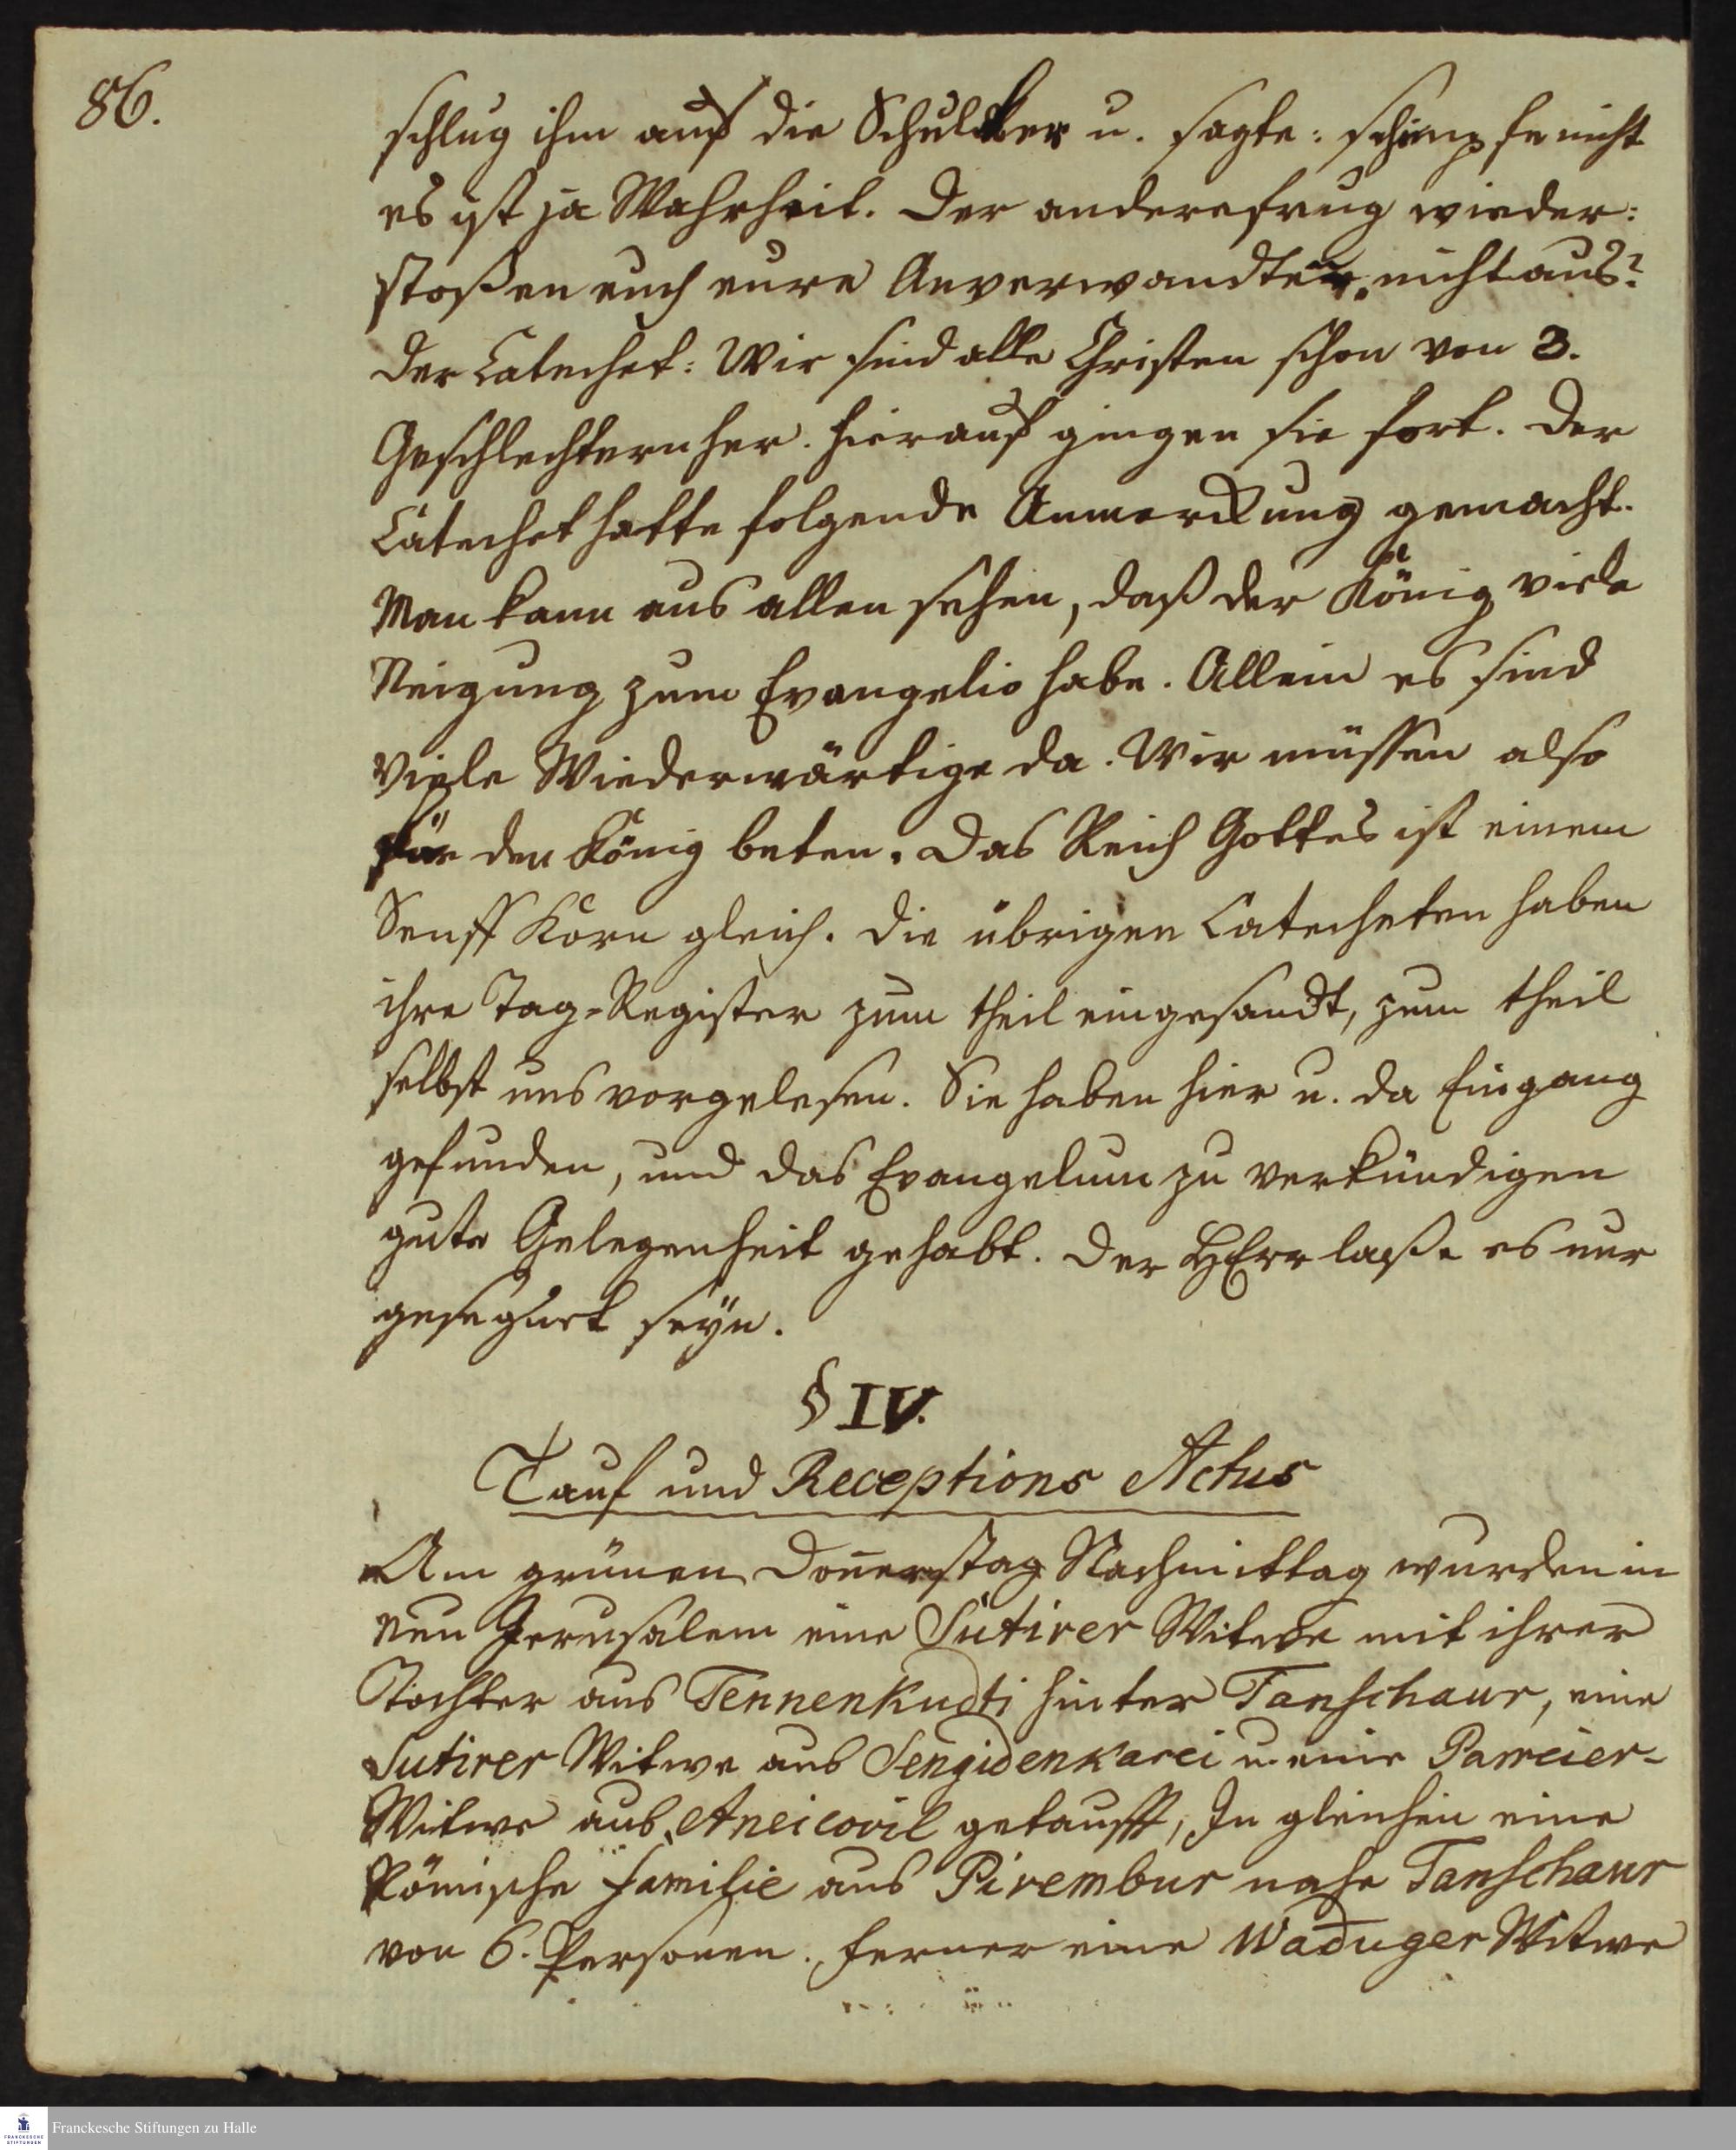 86.
schlug ihm auf die Schulder u. sagte: schimpfe nicht
es ist ja Wahrheit. Der andere frug wieder:
stoßen euch eure Anverwandten nicht aus?
Der Catechet: Wir sind alle Christen schon von 3.
Geschlechtern her. Hierauf gingen sie fort. Der
Catechet hatte folgende Anmerckung gemacht.
Man kann aus allen sehen, daß der König viele
Neigung zum Evangelio habe. Allein es sind
viele Wiederwärtige da. Wir müssen also
für den König beten. Das Reich Gottes ist einem
Senff Korn gleich. Die übrigen Catecheten haben
ihre Tag-Register zum theil eingesandt, zum theil
selbst uns vorgelesen. Sie haben hier u. da Eingang
gefunden, und das Evangelum zu verkündigen
gute Gelegenheit gehabt. Der HErr laße es nur
gesegnet seyn.
§ IV.
Tauf und Receptions Actus
Am grünen Doñerstag Nachmittag wurden in
neu Jerusalem eine Sutirer Witwe mit ihrer
Tochter aus TennenKudti hinter Tanschaur, eine
Sutirer Witwe aus SengidenKarei u. eine Parreier-
Witwe aus Aneicovil getaufft, In gleichen eine
Römische Familie aus Pirembur nahe Tanschaur
von 6. Personen. Ferner eine Waduger Witwe
Franckesche Stiftungen zu Halle
FRANCKESCHE
STIFTUNGEN